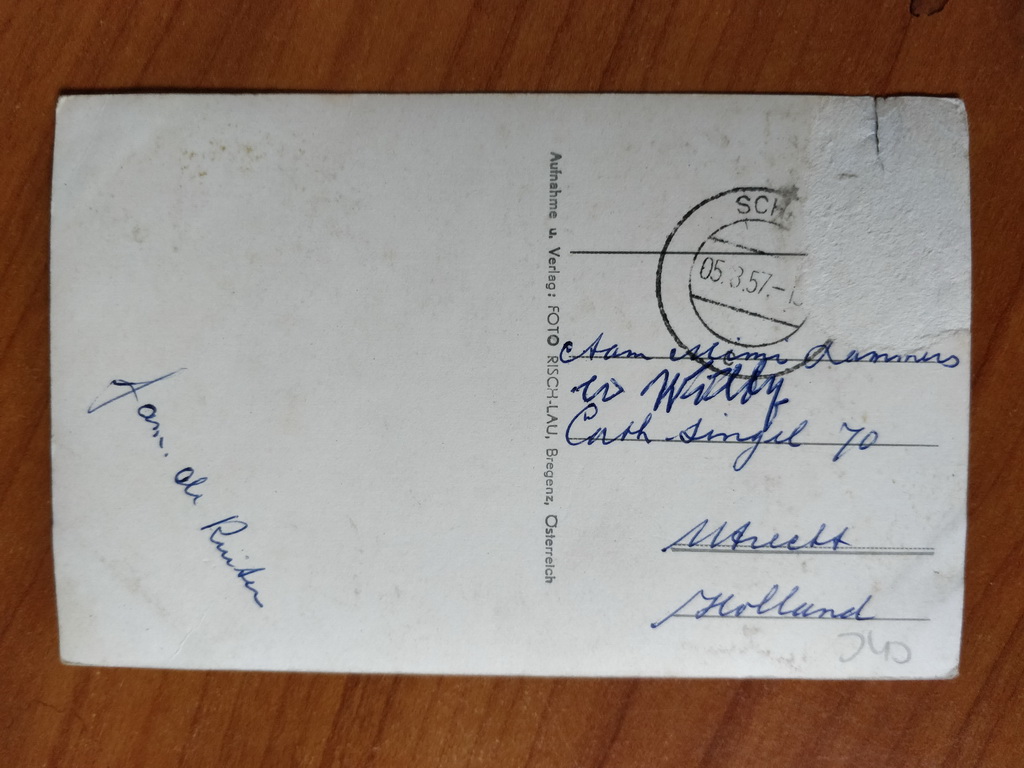 Fam. de Ruiter
Aufnahme u. Verlag: FOTO RISCH-LAU, Bregenz, Österreich
SCH
05.3.57.-1
Aan Lammers
Cath Singel 70
Utrecht
Holland